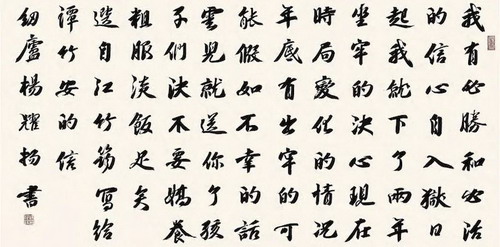 我有必勝和必活
的信心自入獄日
起我就下了兩年
坐牢的決心現在
時局變化的情況
年底有出牢的可
能假如不幸的話
雲兒就送你了孩
子們決不要嬌養
粗服淡飯足矣
選自江竹筠寫給
譚竹安的信
紉廬楊耀揚書